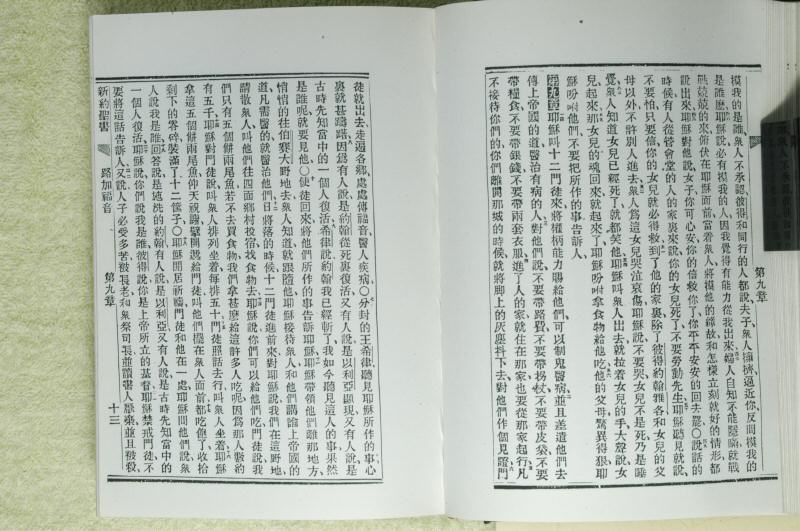 第九章
摸我的是誰、衆人不承認、彼得和同行的人都說、夫子、衆人擁擠逼近你、反問摸我的
是誰麼、耶穌說、必有摸我的人、因我覺得有能力從我出來、婦人自知不能隱瞞、就戰
戰兢兢的來俯伏在耶穌面前、當着衆人將摸他的緣故和怎樣立刻就好的情形、都
說出來、耶穌對他說、女子你可心安、你的信救了你、平平安安的回去罷○說話的
時候、有人從管會堂的人的家裏來說、你的女兒死了、不要勞動先生、耶穌聽見就說、
不要怕、只要信、你的女兒就必得救、到了他的家裏、除了彼得約翰雅各和女兒的父
母以外、不許別人進去、衆人爲這女兒哭泣哀傷、耶穌說、不要哭、女兒不是死、乃是睡
覺、衆人知道女兒已經死了、就都笑他、耶穌叫衆人出去、就拉着女兒的手、大聲說、女
兒起來、那女兒的魂回來、就起來了、耶穌吩咐拿食物給他吃、他的父母驚異得很、耶
穌吩咐他們、不要把所作的事告訴人、
第九章耶穌叫十二門徒來、將權柄能力賜給他們、可以制鬼醫病、並且差遣他們去
傳上帝國的道、醫治有病的人、對他們說、不要帶路費、不要帶拐杖、不要帶皮袋、不要
帶糧食、不要帶銀錢、不要帶兩套衣服、進了人的家、就住在那家、也要從那家起行、凡
不接待你們的、你們離開那城的時候、就將脚上的灰塵抖下去、對他們作個見證、門
徒就出去、走遍各鄉、處處傳福音、醫人疾病、○分封的王希律、聽見耶穌所作的事、心
裏就甚躊躇、因爲有人說、是約翰從死裏復活、又有人說、是以利亞顯現、又有人說、是
古時先知當中的一個人復活、希律說、約翰我已經斬了、我如今聽見這人的事、果然
是誰呢、就要見他○使徒回來、將他們所作的事告訴耶穌、耶穌帶領他們離那地方、
悄悄的往伯賽大野地去、衆人知道、就跟隨他、耶穌接待衆人、和他們講論上帝國的
道、凡需醫的、就醫治他們、日將落的時候、十二門徒進前來對耶穌說、我們在這野地、
請散衆人、叫他們往四面鄉村投宿找食物去、耶穌說、你們可以給他們吃、門徒說、我
們只有五個餅兩尾魚、若不去買食物、我們拿甚麽給這許多人吃呢、因爲那人數約
有五千、耶穌對門徒說、叫衆人排列坐着、每排五十、門徒照話去行、叫衆人坐着、耶穌
拿這五個餅兩尾魚、仰天祝謝、擘開遞給門徒、叫他們擺在衆人面前、都吃飽了、收拾
剩下的零碎、裝滿了十二筐子、○耶穌閒居祈禱、門徒和他在一處、耶穌問他們說、衆
人說我是誰、回答說、是施洗的約翰、有人說是以利亞、又有人說、是古時先知當中的
一個人復活、耶穌說、你們說我是誰、彼得說、你是上帝所立的基督、耶穌禁戒門徒、不
要將這話告訴人、又說、人子必受多苦、被長老和衆祭司長並讀書人厭棄、並且被殺、
新約聖書　路加福音　第九章　十三